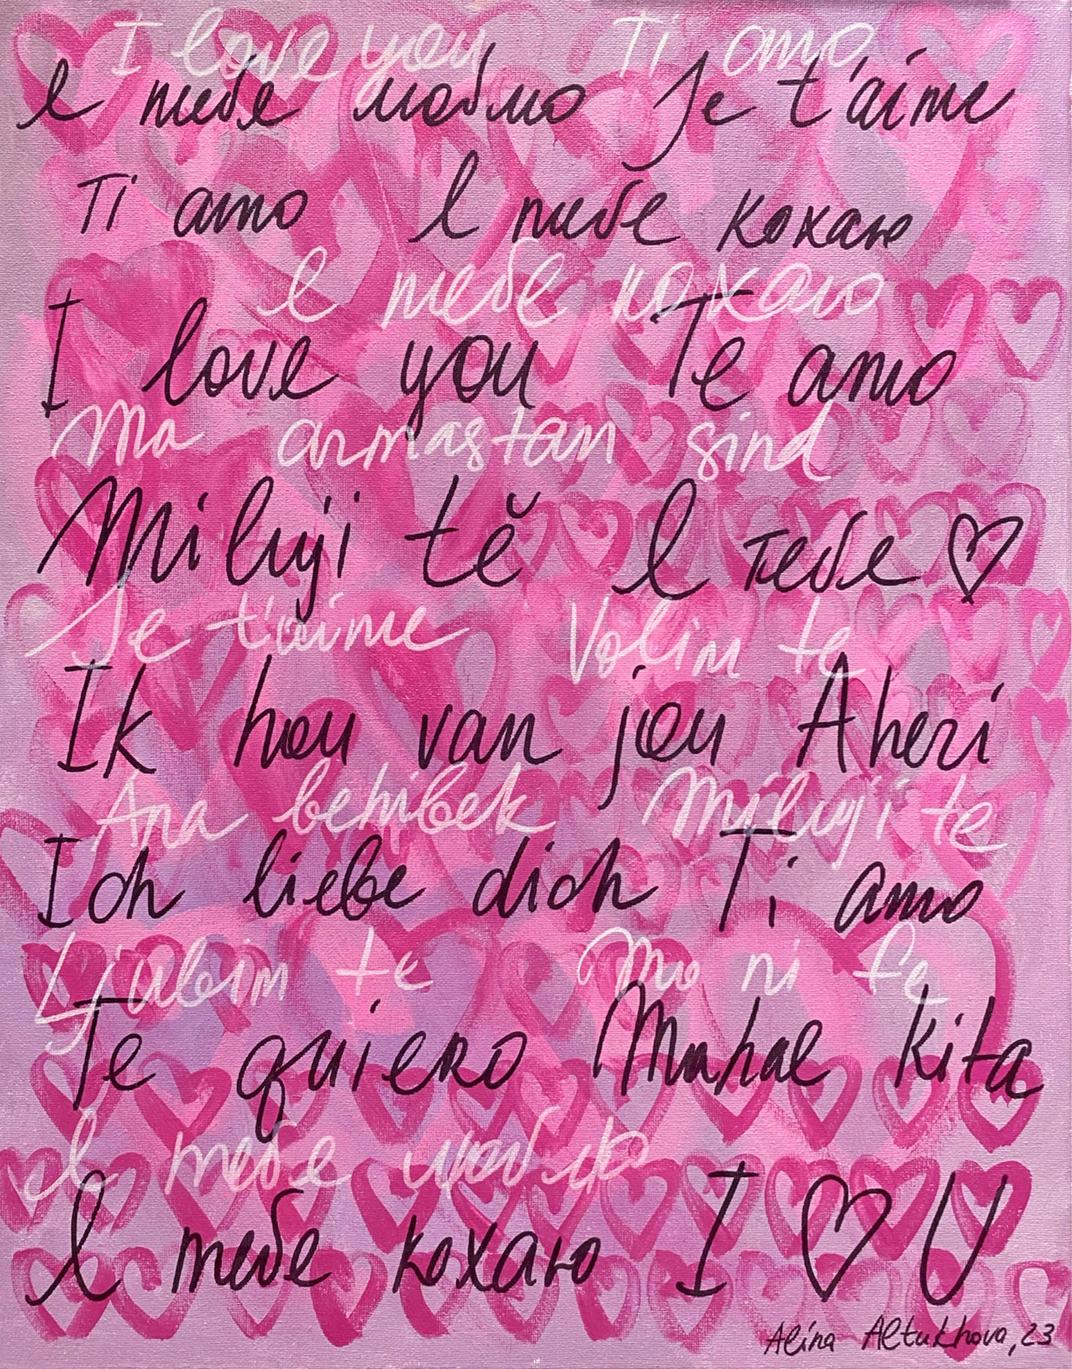 I love you Ti amo
Я тебе люблю Je t'aime
Ti amo Я тебе кохаю
Я тебе кохаю
I love you Te amo
Ma armastan sind
Miluji tě Я тебе ♡
Je t'aime Volim te
Ik hou van jou Aheri
Ana behibek Miluji te
Ich liebe dich Ti amo
Ljubim te Mo ni fe
Te quiero Muhae Kita
Я тебе люблю
Я тебе кохаю I ♡ U
Alina Altukhova, 23